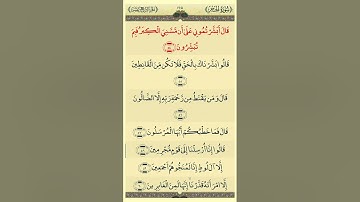 قَالَ أَبَشَّرْتُمُونِي عَلَىٰ أَن مَّسَّنِيَ الْكِبَرُ فَبِمَ
تُبَشِّرُونَ
قَالُوا بَشَّرْنَاكَ بِالْحَقِّ فَلَا تَكُن مِّنَ الْقَانِطِينَ
قَالَ وَمَن يَقْنَطُ مِن رَّحْمَةِ رَبِّهِ إِلَّا الضَّالُّونَ
قَالَ فَمَا خَطْبُكُمْ أَيُّهَا الْمُرْسَلُونَ
قَالُوا إِنَّا أُرْسِلْنَا إِلَىٰ قَوْمٍ مُّجْرِمِينَ
إِلَّا آلَ لُوطٍ إِنَّا لَمُنَجُّوهُمْ أَجْمَعِينَ
إِلَّا امْرَأَتَهُ قَدَّرْنَا إِنَّهَا لَمِنَ الْغَابِرِينَ